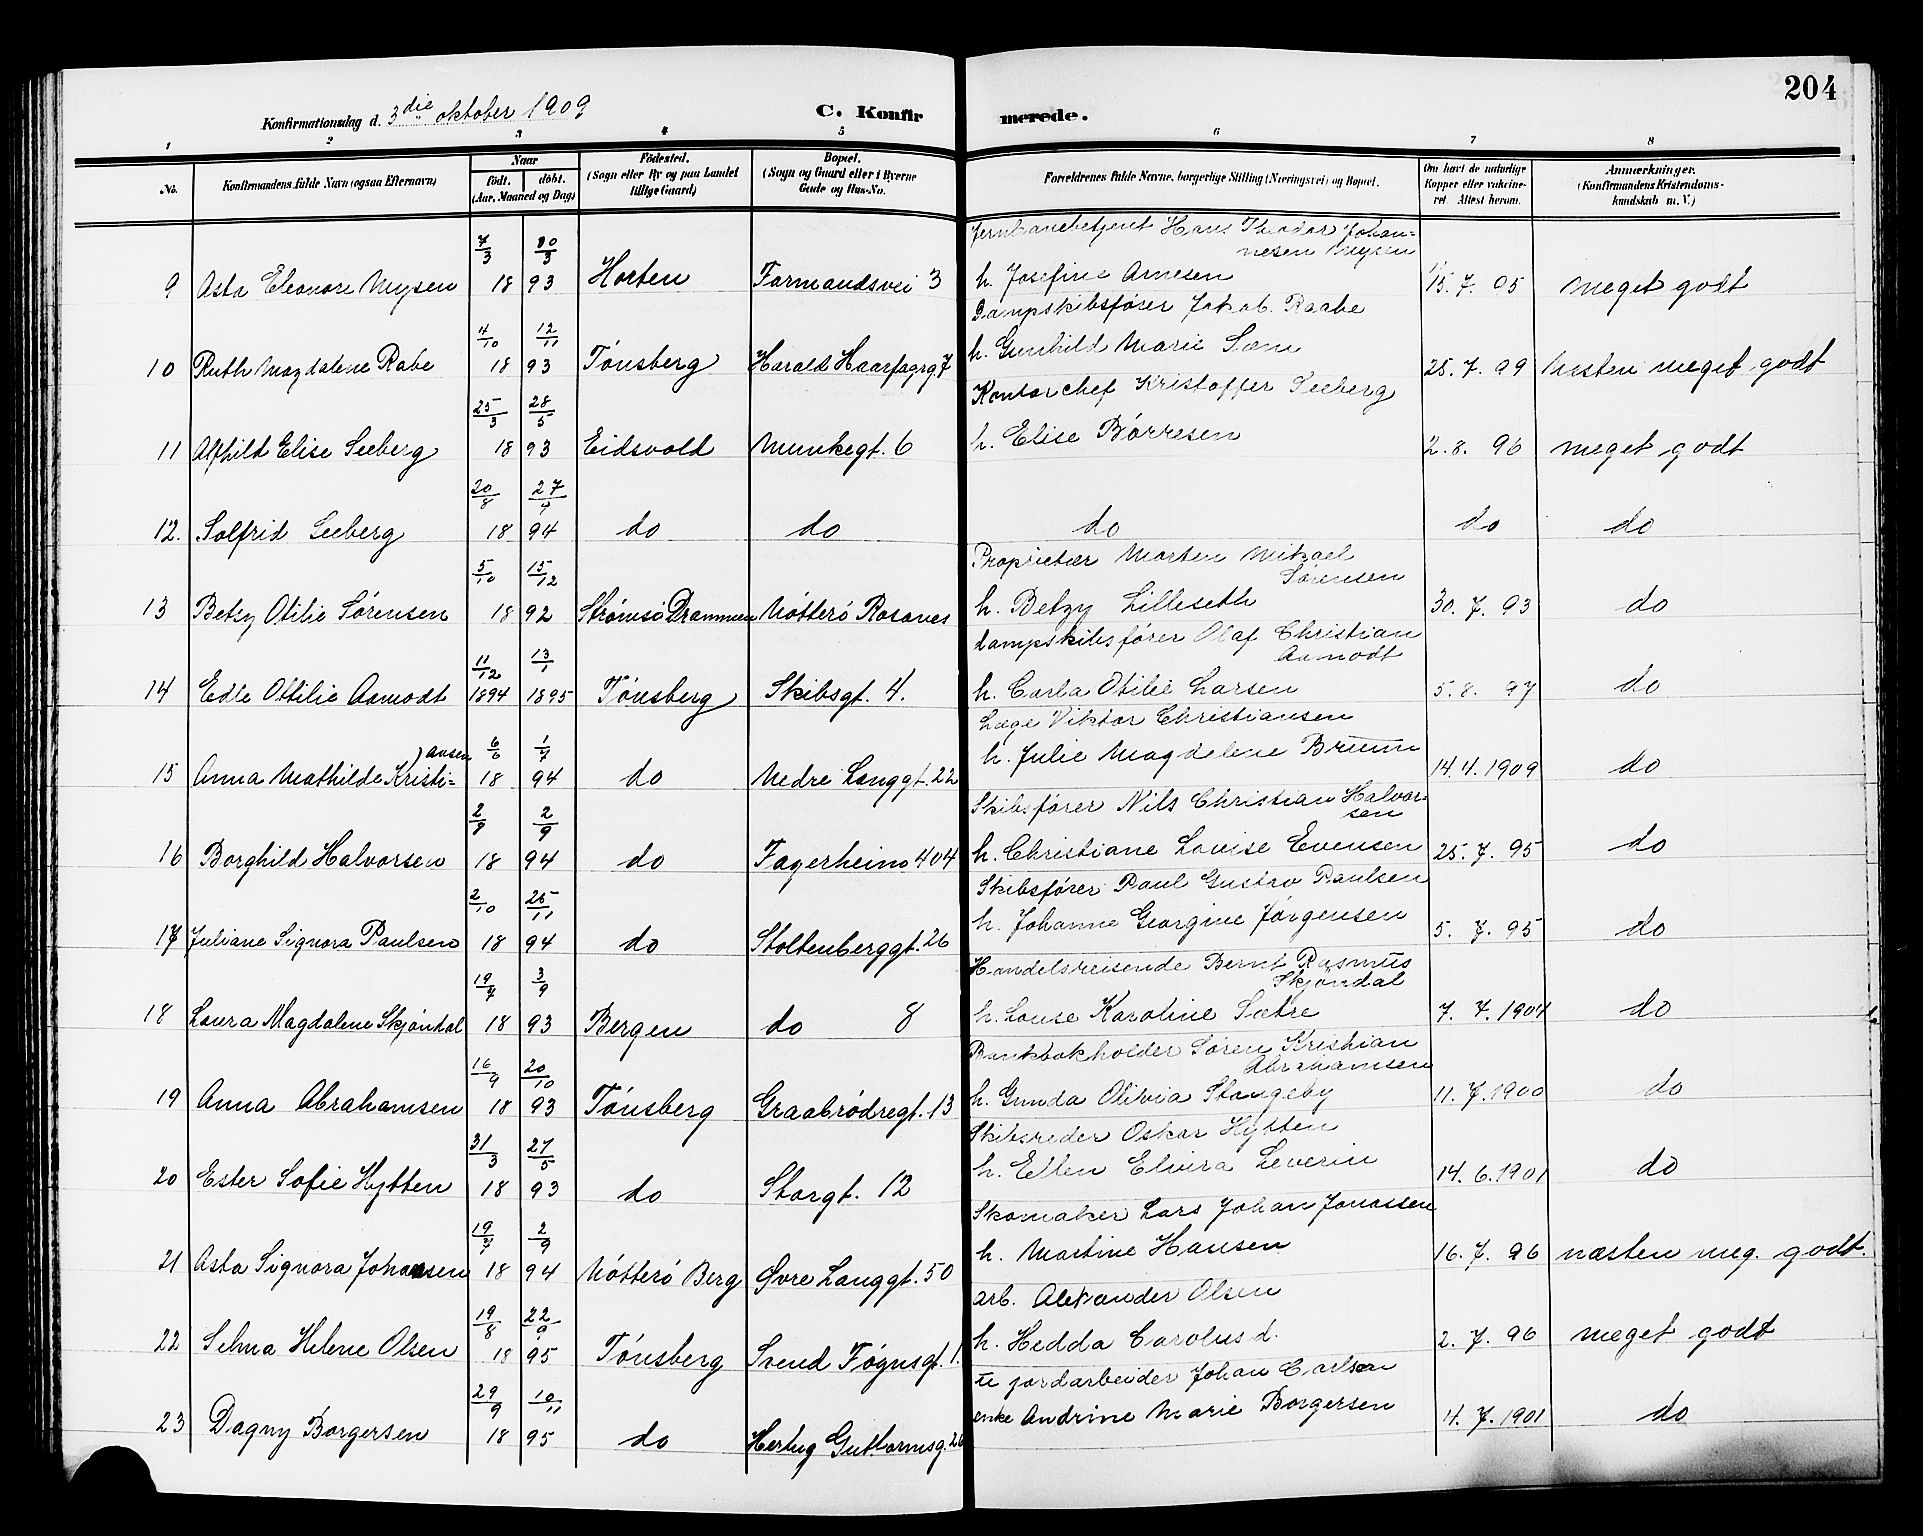 204
Konfirmationsdag d. 3die oktober 1909
C. Konfirmerede.
1 2 3 4 5 6 7 8
No.
Konfirmandens fulde Navn (ogsaa Efternavn)
Naar
født. døbt.
(Aar, Maaned og Dag)
Fødested.
(Sogn eller By og paa Landet
tillige Gaard)
Bopæl.
(Sogn og Gaard eller i Byerne
Gade og Hus-No.
Forældrenes fulde Navne, borgerlige Stilling (Næringsvei) og Bopæl.
Om havt de naturlige
Kopper eller vakcine-
ret Attest herom.
Anmærkninger.
(Konfirmandens Kristendoms-
kundskab m. V.)
7/3 10/3 Jernbanebetjent Hans Theodor Johan-
nesen Mysen
9 Asta Eleonore Mysen 18 93 Horten Farmandsvei 3 h. Josefine Arnesen 15. 7. 05 meget godt
Dampskibsfører Jakob Raabe
4/10 12/11
10 Ruth Magdalene Rabe 18 93 Tønsberg Harald Haarfagrg. 7 h. Gunhild Marie Sem 25. 7. 99 næsten meget godt
25/3 28/5 Kontorchef Kristoffer Seeberg
11 Alfhild Elise Seeberg 18 93 Eidsvold Munkegt. 6 h. Elise Børresen 2. 8. 96 meget godt
20/8 27/
12. Solfrid Seeberg 18 94 do do do do do
5/10 15/12 Proprietær Morten Mikael
Sørensen
13 Betzy Otilie Sørensen 18 92 Strømsø Drammen Nøtterø Rosanes h. Betzy Lilleseth 30. 7. 93 do
11/12 13/1 Dampskibsfører Olaf Christian
Aamodt
14 Edle Ottilie Aamodt 1894 1895 Tønsberg Skibsgt. 4. h. Carla Otilie Larsen 5. 8. 97 do
Læge Viktor Christiansen
6/6 1/7
15 Anna Mathilde Kristi-ansen 18 94 do Nedre Langgt. 22 h. Julie Magdelene Bruun 14. 4. 1909 do
2/ 2/9 Skibsfører Nils Christian Halvor-
sen
16 Borghild Halvorsen 18 94 do Fagerheim 404 h. Christiane Lovise Evensen 25. 7. 95 do
2/10 25/11 Skibsfører Paul Gustav Paulsen
17 Juliane Signora Paulsen 18 94 do Stoltenberggt. 26 h. Johanne Georgine Jørgensen 5. 7. 95 do
19/7 3/9 Handelsreisende Bernt Rasmus
Skjøndal
18 Laura Magdalene Skjøndal 18 93 Bergen do 8 h. Louse Karoline Sætre 7. 7. 1904 do
16/9 20/10 Bankbokholder Søren Kristian
Abrahamsen
19 Anna Abrahamsen 18 93 Tønsberg Graabrødregt. 13 h. Gunda Olivia Stangeby 11. 7. 1900 do
31/3 27/5 Skibsreder Oskar Hytten
20 Ester Sofie Hytten 18 93 do Storgt. 12 h. Ellen Elvira Leverin 14. 6. 1901 do
19/7 2/9 Skomaker Lars Johan Jonassen
21 Asta Signora Johansen 18 94 Nøtterø Berg Øvre Langgt. 50 h. Martine Hansen 16. 7. 96 næsten meg. godt.
19/8 22/9 arb. Alexander Olsen
22 Selma Helene Olsen 18 95 Tønsberg Svend Føynsgt. 1. h. Hedda Carolusd. 2. 7. 96 meget godt
29/9 10/11 jordarbeider Johan Carlsen
23 Dagny Borgersen 18 95 do Hertug Guttormsg. 26 enke Andrine Marie Borgersen 11. 7. 1901 do